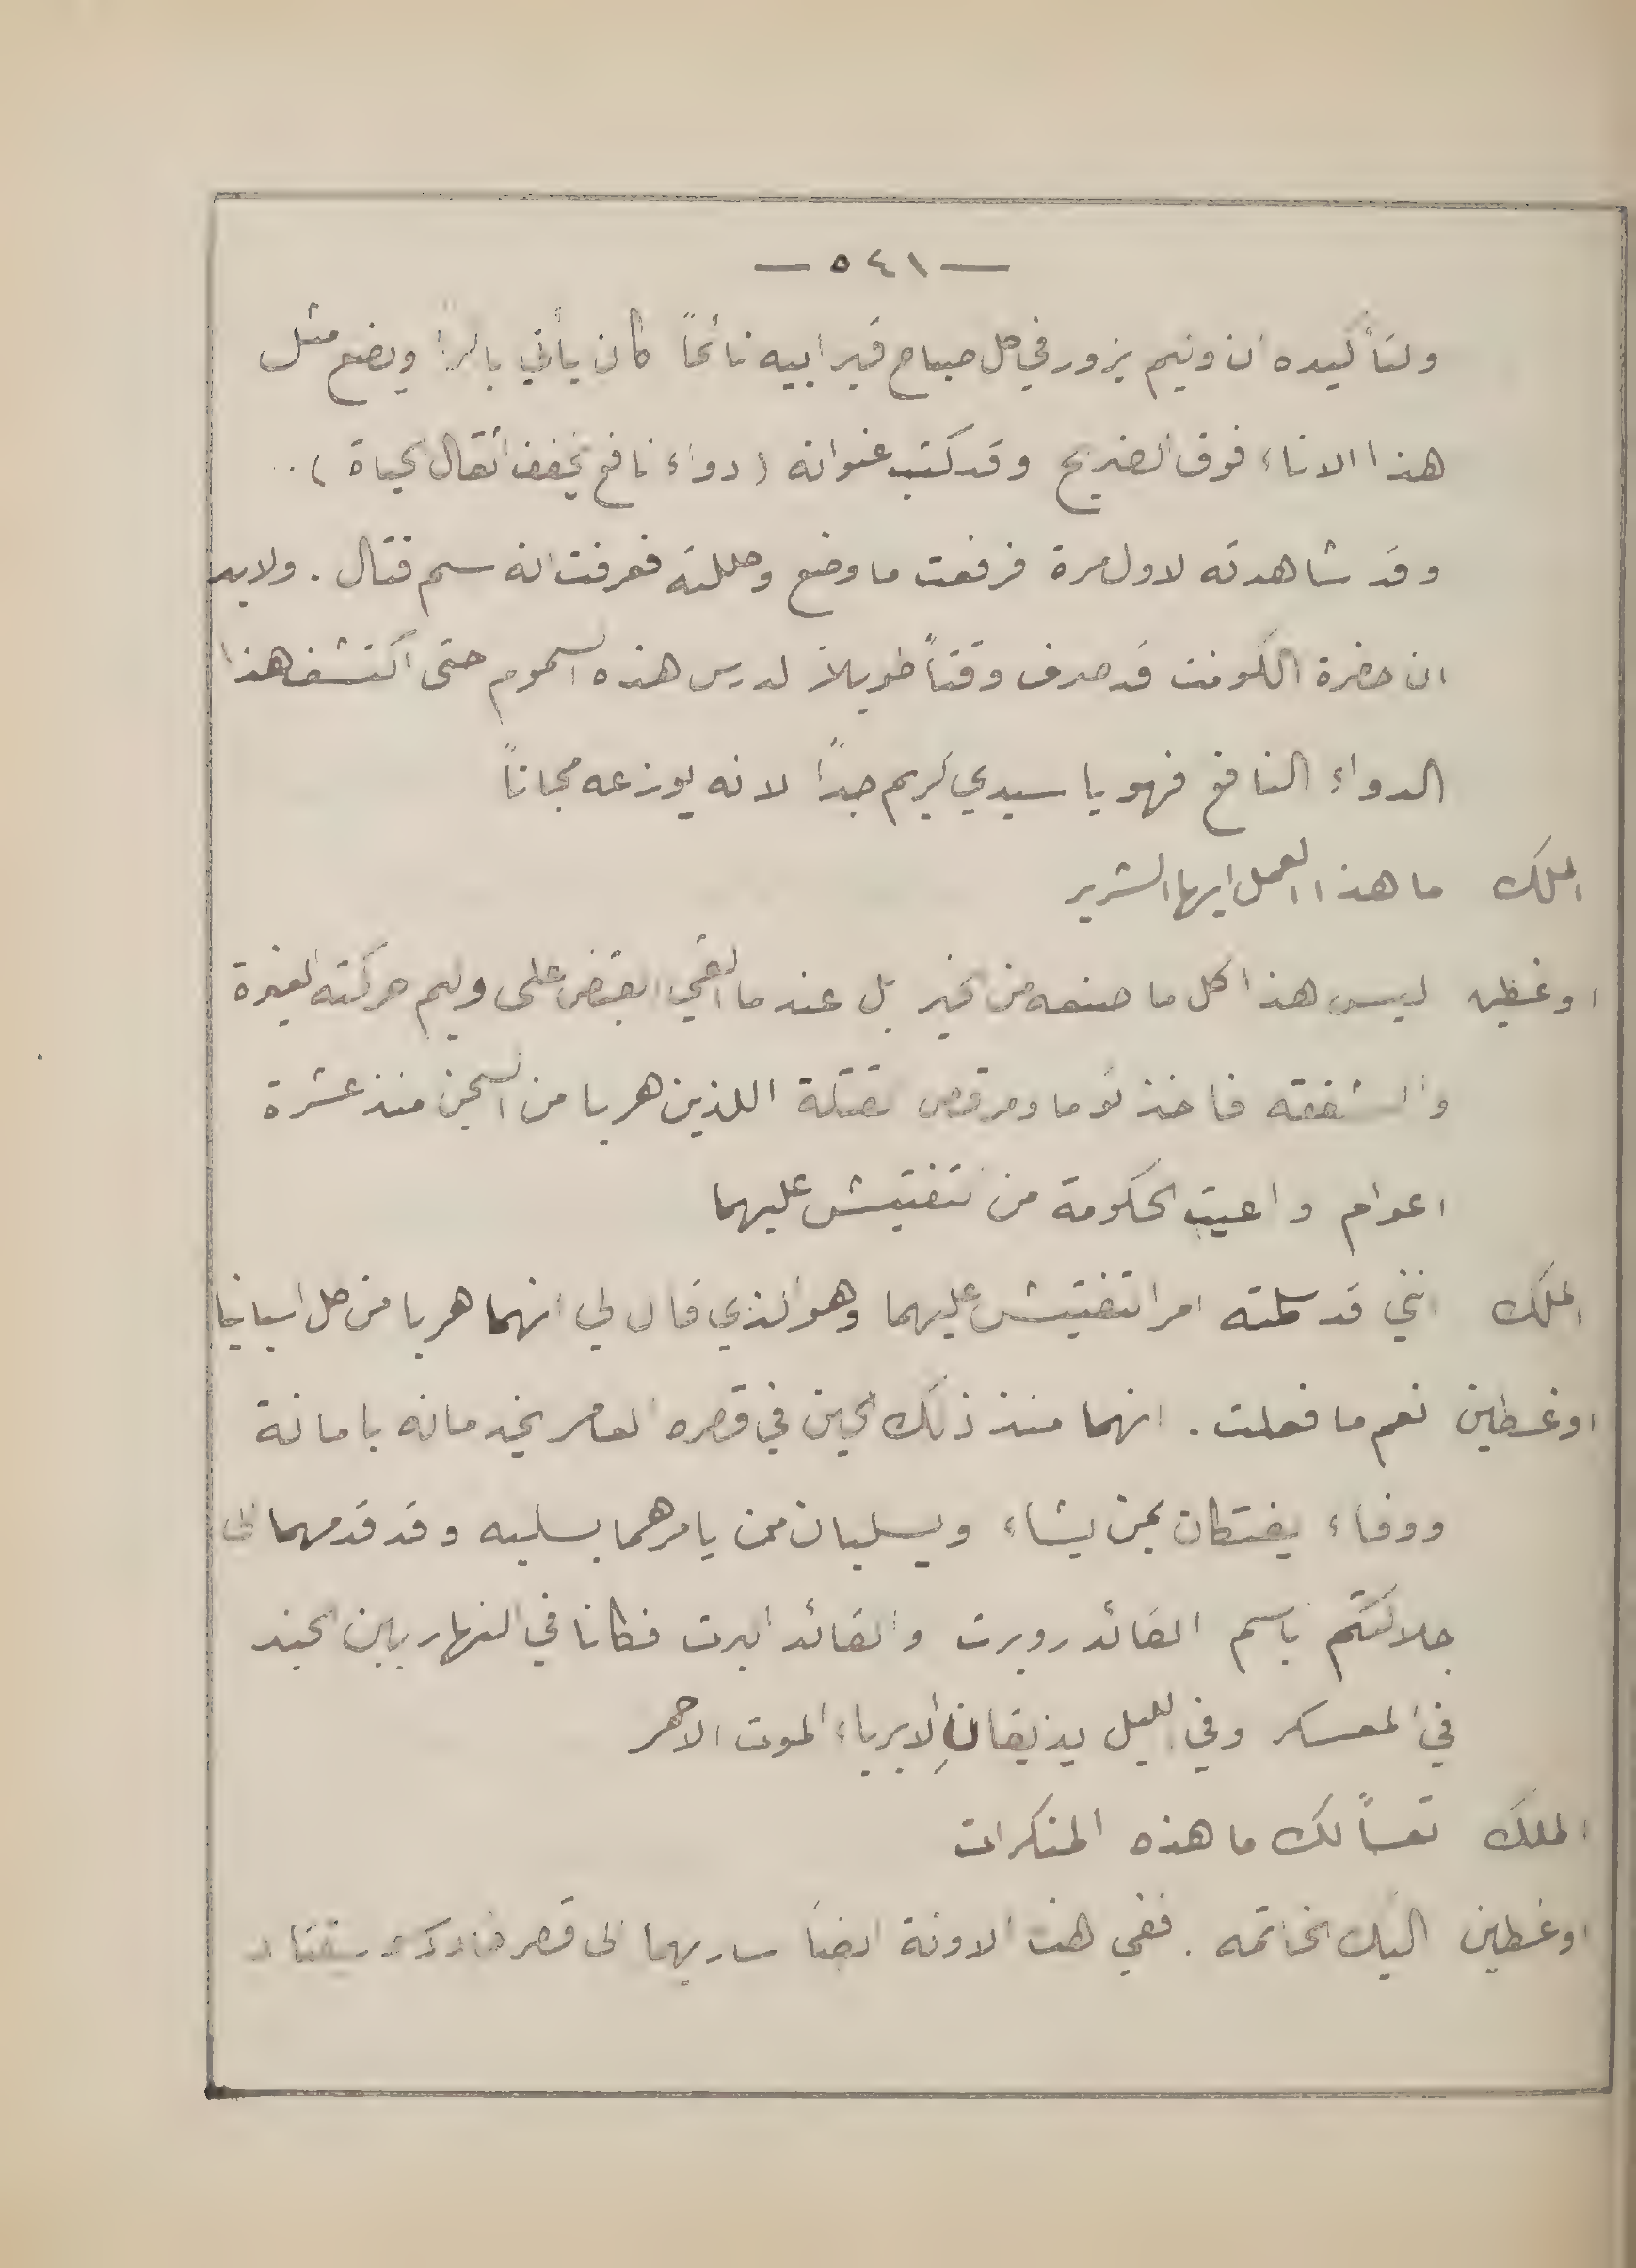 — ٥٤١ —
ولتأكيده ان وليم يزور في كل صباح قبر ابيه نائحاً كان يأتي باكراً ويضع مثل
هذا الاناء فوق الضريح وقد كتب عنوانه (دواء نافع يخفف اثقال الحياة) ..
وقد شاهدته لاول مرة فرفعت ما وضع وحللته فعرفت انه سم قتال . ولابد
ان حضرة الكونت قد صرف وقتاً طويلاً لدرس هذه السموم حتى اكتشف هذا
الدواء النافع فهو يا سيدي كريم جداً لانه يوزعه مجاناً
الملك ما هذا العمل ايها الشرير
اوغسطين ليس هذا كل ما صنعه من الخير بل عندما القي القبض على وليم حركته الغيرة
والشفقة فاخذ توما ومرقص القتلة اللذين هربا من السجن منذ عشرة
اعوام واعيت الحكومة من تفتيش عليهما
الملك انني قد سلمته امر التفتيش عليهما وهو الذي قال لي انهما هربا من كل اسبانيا
اوغسطين نعم ما فعلت . انهما منذ ذلك الحين في قصره العامر يخدمانه بامانة
ووفاء يفتكان بمن يشاء ويسلبان ممن يامرهما بسلبه وقد قدمهما الى
جلالتكم باسم القائد روبرت والقائد البرت فكانا في النهار بين الجند
في المعسكر وفي الليل يذيقانِ الابرياء الموت الاحمر
الملك تعساً لك ما هذه المنكرات
اوغسطين اليك الخاتمه . ففي هذه الاونة ايضاً سار بهما الى قصر